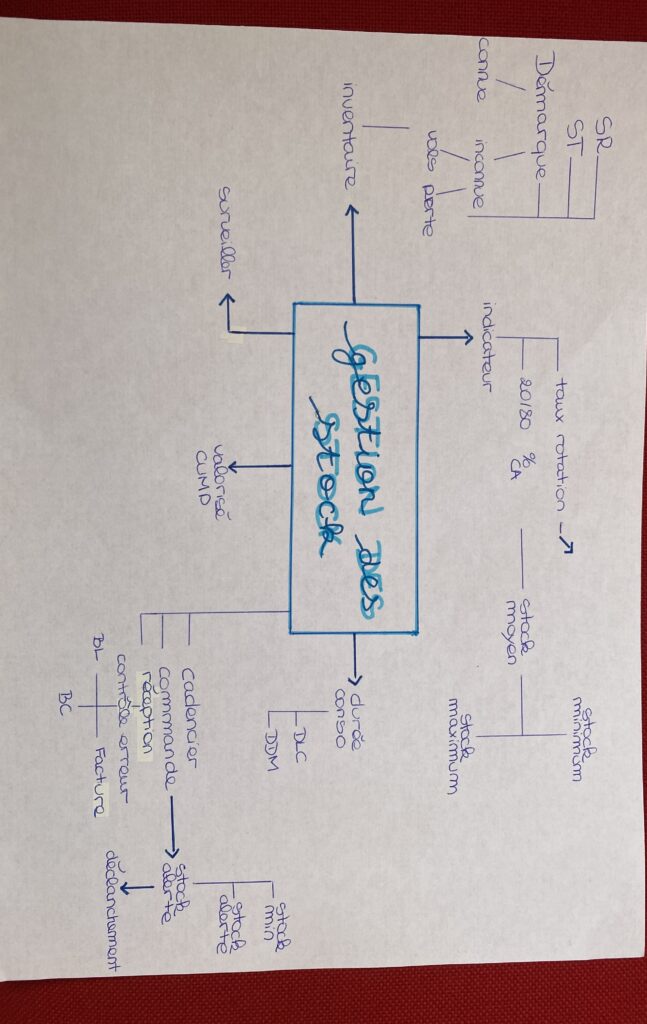 GESTION DES
STOCK
inventaire
SR
ST
Démarque
connue
inconnue
vols
perte
indicateur
taux rotation
20/80 % CA
stock
moyen
stock
minimum
stock
maximum
durée
conso
DLC
DDM
Cadencier
commande
réception
contrôle erreur
BL
BC
Facture
stock
alerte
stock
min
stock
alerte
déclanchement
valorisé
CUMP
surveiller